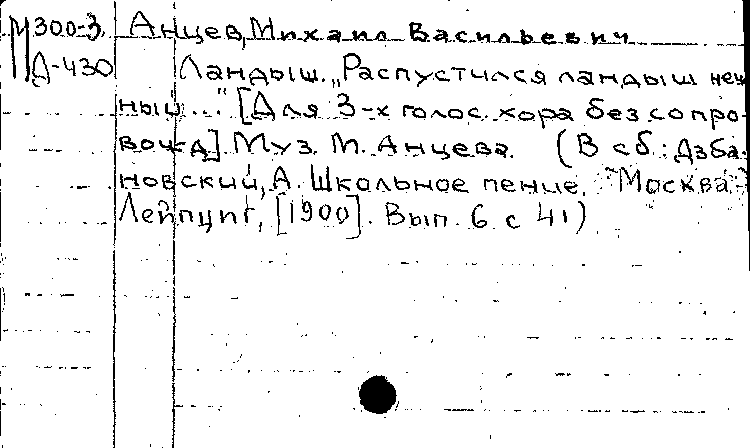 М300-3 Анцев, Михаил Васильевич
Д-430 Ландыш. „Распустился ландыш неж
ный..." [Для 3-х голос. хора без сопро-
вожд]. Муз. М. Анцева. (В сб.: Дзба-
новский, А. Школьное пение. Москва-
Лейпциг, [1900]. Вып. 6 с 41)